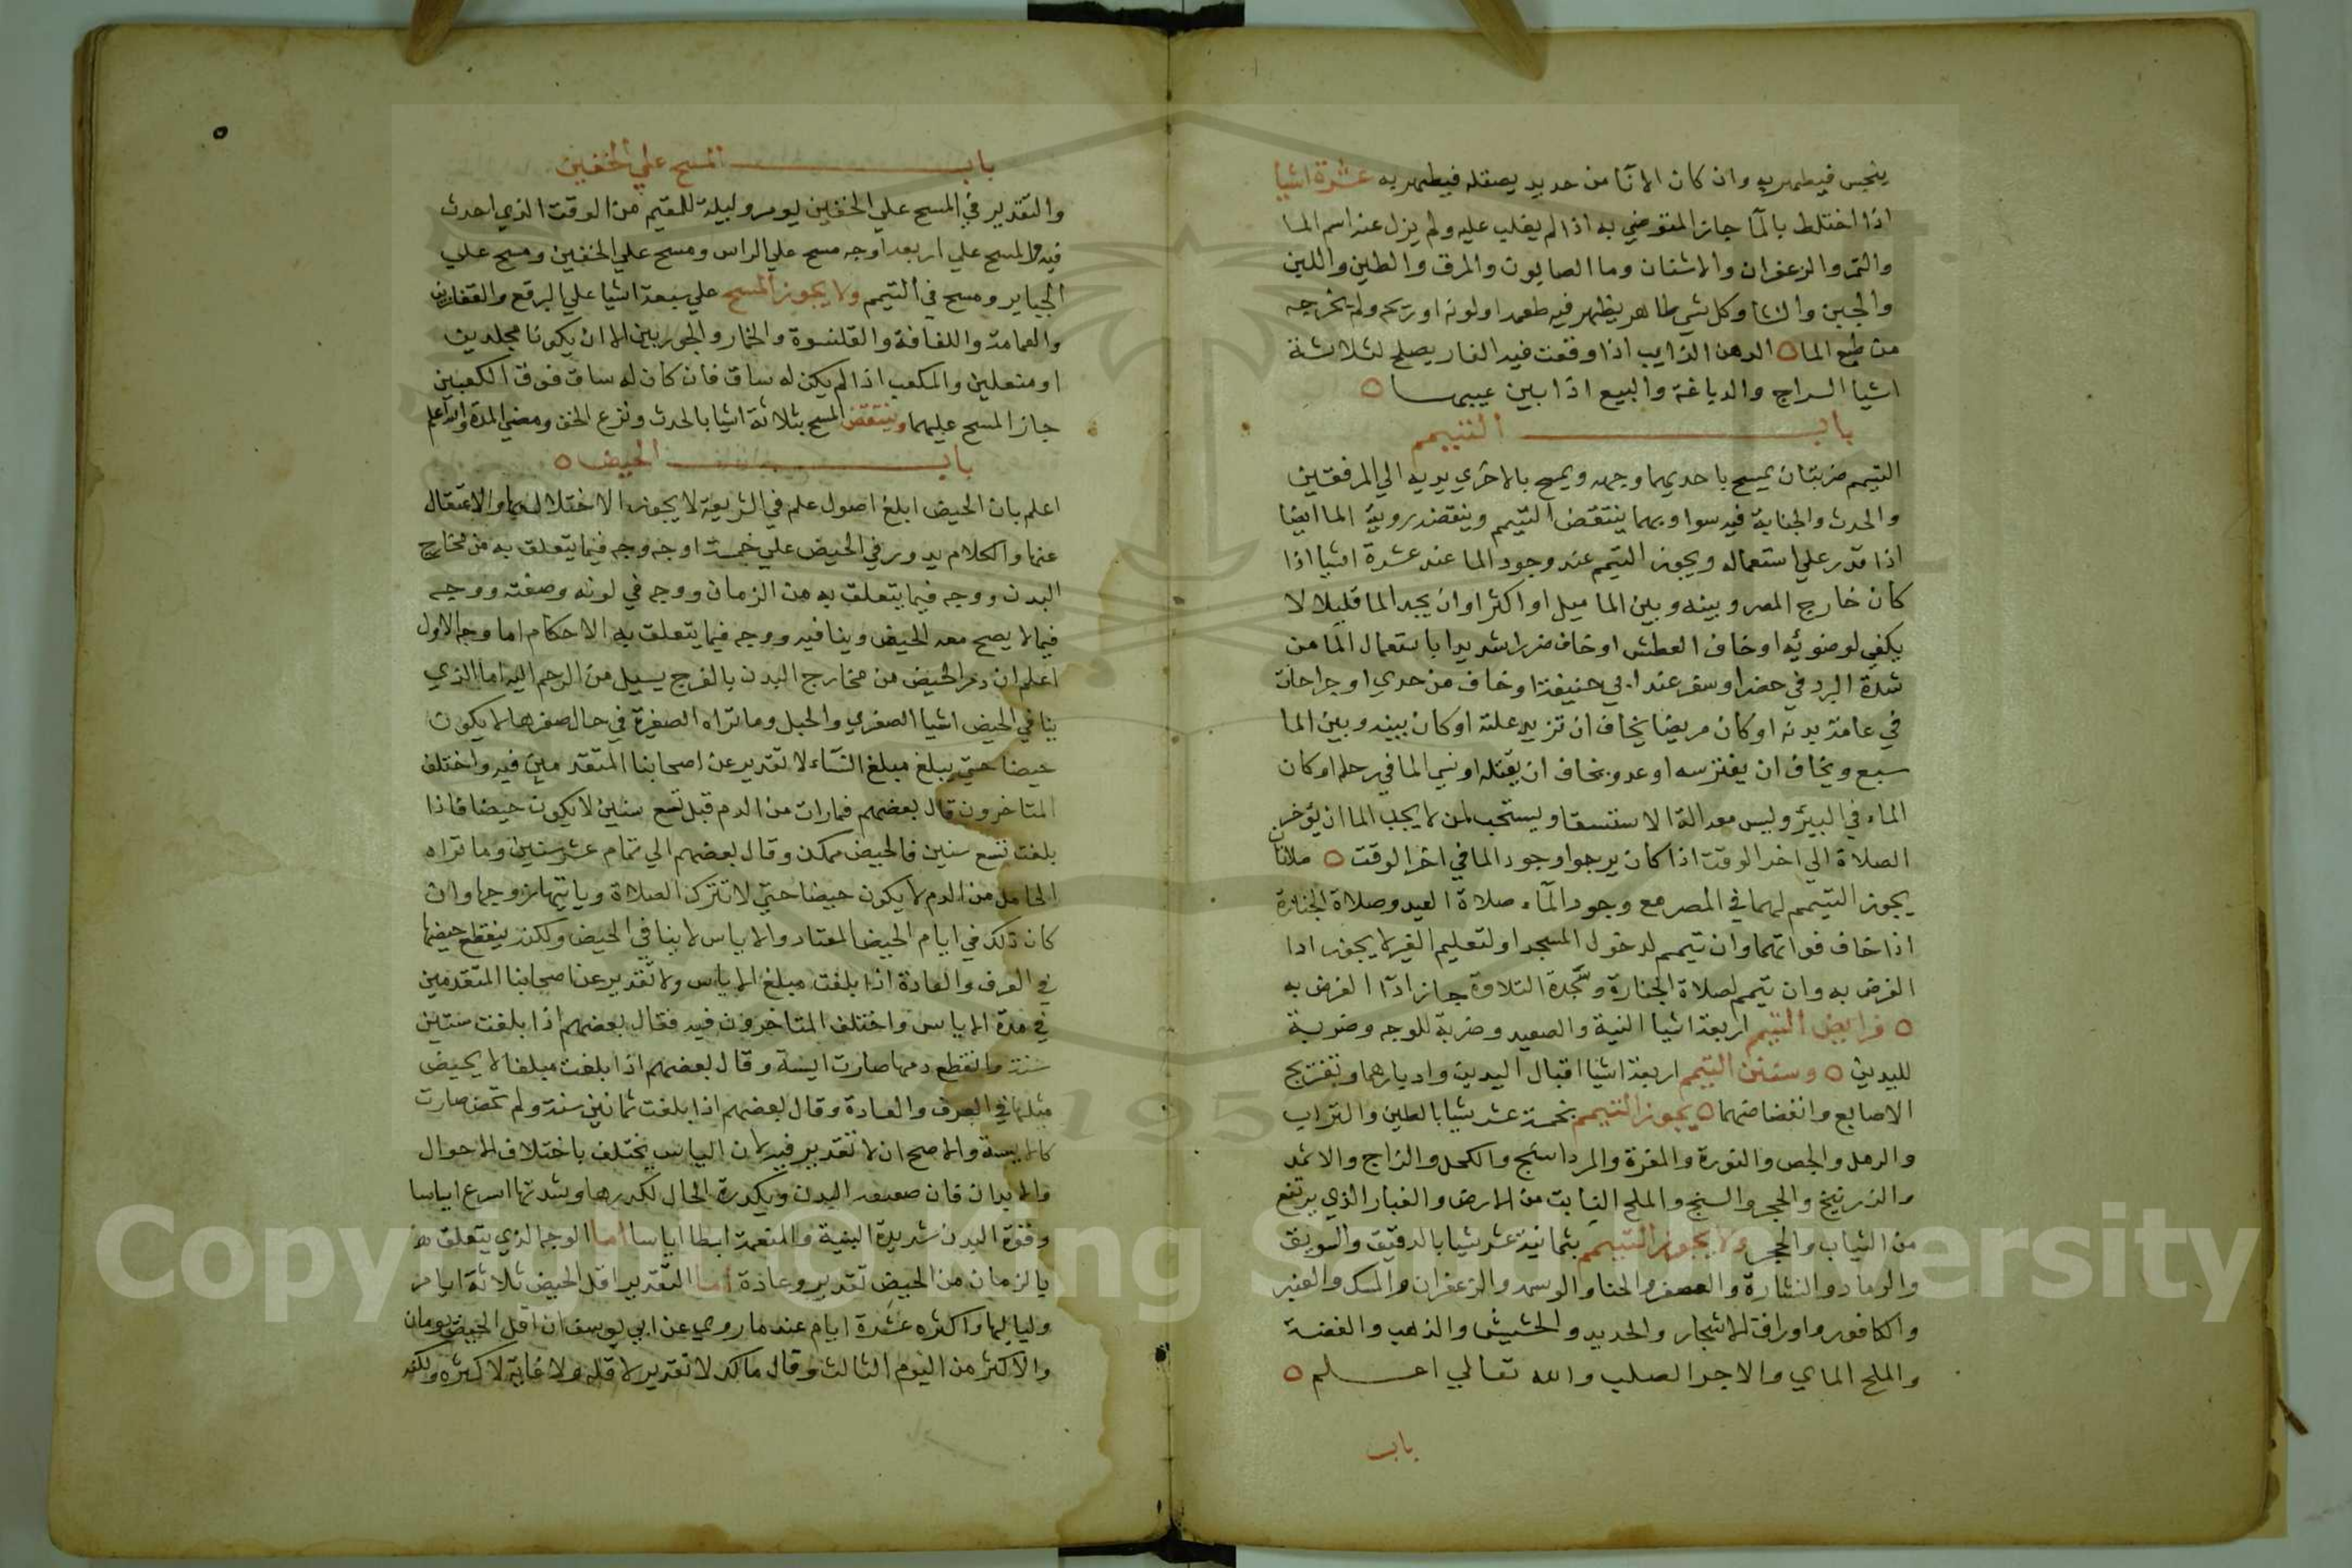 ينجس فيطهر به وان كان الانا من حديد يصقله فيطهر به عشرة اشيا
اذا اختلط بالمآ جاز التوضي به اذا لم يغلب عليه ولم يزل عنه اسم الما
والتمر والزعفران والاشنان وما الصابون والمرق والطين واللبن
والجبن والنشا وكل شي طاهر يظهر فيه طعمه او لونه او ريحه ولم يخرجه
من طبع الما ه الدهن الذايب اذا وقعت فيه الفار يصلح لثلاثة
اشيا السراج والدباغة والبيع اذا بين عيبها ه
باب التيمم
التيمم ضربتان يمسح باحديهما وجهه ويمسح بالاخري يديه الي المرفقين
والحدث والجنابة فيه سوا وبهما ينتقض التيمم وينقضه روية الما ايضا
اذا قدر علي استعماله ويجوز التيمم عند وجود الما عند عشرة اشيا اذا
كان خارج المصر وبينه وبين الما ميل او اكثر او ان يجد الما قليلا لا
يكفي لوضوئه او خاف العطش او خاف ضررا شديدا باستعمال المآ من
شدة البرد في حضر او سفر عند ابي حنيفة او خاف من جدري او جراحات
في عامة بدنه او كان مريضا يخاف ان تزيد علته او كان بينه وبين الما
سبع ويخاف ان يفترسه او عدو يخاف ان يقتله او نسي الما في رحله او كان
الماء في البير وليس معه الة الاستسقا ويستحب لمن لا يجد الما ان يؤخر
الصلاة الي اخر الوقت اذا كان يرجوا وجود الما في اخر الوقت ه صلاتان
يجوز التيمم لهما في المصر مع وجود المآء صلاة العيد وصلاة الجنازة
اذا خاف فواتهما وان تيمم لدخول المسجد او لتعليم الغير لا يجوز ادا
الفرض به وان تيمم لصلاة الجنازة وسجدة التلاوة جاز ادآ الفرض به
ه فرايض التيمم اربعة اشيا النية والصعيد وضربة للوجه وضربة
لليدين ه وسنن التيمم اربعة اشيا اقبال اليدين وادبارهما وتفريج
الاصابع وانفضاضهما ه يجوز التيمم بخمسة عشر شيا بالطين والتراب
والرمل والجص والنورة والمغرة والمرداسنج والكحل والزاج والاثمد
والزرنيخ والحجر والسبخ والملح النابت من الارض والغبار الذي يرتفع
من الثياب والحجر ولا يجوز التيمم بثمانية عشر شيا بالدقيق والسويق
والرماد والنشارة والعصفر والحنا والوسمه والزعفران والمسك والعنبر
والكافور واوراق الاشجار والحديد والحشيش والذهب والفضة
والملح الماي والاجر الصلب والله تعالي اعلم ه
باب
باب المسح علي الخفين
والتقدير في المسح علي الخفين يوم وليلة للمقيم من الوقت الذي احدث
فيه والمسح علي اربعة اوجه مسح علي الراس ومسح علي الخفين ومسح علي
الجباير ومسح في التيمم ولا يجوز المسح علي سبعة اشيا علي البرقع والقفازين
والعمامة واللفافة والقلنسوة والخمار والجوربين الا ان يكونا مجلدين
او منعلين والمكعب اذا لم يكن له ساق فان كان له ساق فوق الكعبين
جاز المسح عليهما وينتقض المسح بثلاثة اشيا بالحدث ونزع الخف ومضي المدة والله اعلم
باب الحيض ه
اعلم بان الحيض ابلغ اصول علم في الشريعة لا يجوز الاختلال والاعتقال
عنها والكلام يدور في الحيض علي خمسة اوجه وجه فيما يتعلق به من مخارج
البدن ووجه فيما يتعلق به من الزمان ووجه في لونه وصفته ووجه
فيما لا يصح معه الحيض وينافيه ووجه فيما يتعلق به الاحكام اما وجه الاول
اعلم ان دم الحيض من مخارج البدن بالفرج يسيل من الرحم اليه اما الذي
ينافي الحيض اشيا الصغري والحبل وما تراه الصغيرة في حال صغرها لا يكون
حيضا حتي يبلغ مبلغ النسآء لا تقدير عن اصحابنا المتقدمين فيه واختلف
المتاخرون قال بعضهم فما رات من الدم قبل تسع سنين لا يكون حيضا فاذا
بلغت تسع سنين فالحيض ممكن وقال بعضهم الي تمام عشر سنين وما تراه
الحامل من الدم لا يكون حيضا حتي لا تترك الصلاة وياتيها زوجها وان
كان ذلك في ايام الحيض المعتاد والاياس لا ينافي الحيض ولكنه ينقطع حيضها
في العرف والعادة اذا بلغت مبلغ الاياس ولا تقدير عن اصحابنا المتقدمين
في مدة الاياس واختلف المتاخرون فيه فقال بعضهم اذا بلغت ستين
سنة وانقطع دمها صارت ايسة وقال بعضهم اذا بلغت مبلغا لا يحيض
مثلها في العرف والعادة وقال بعضهم اذا بلغت ثمانين سنة ولم تحض صارت
كالايسة والاصح ان لا تقدير فيه لان الياس يختلف باختلاف الاحوال
والابدان فان البدن الحال وشدتها اسرع اياسا
وقوة البدن شديدة البنية والمنعمة ابطا اياسا اما الوجه الذي يتعلق
بالزمان من الحيض تقدير وعادة اما التقدير اقل الحيض ثلاثة ايام
ولياليها واكثره عشرة ايام عندنا روي عن ابي يوسف ان اقل الحيض يومان
والاكثر من اليوم الثالث وقال مالك لا تقدير لاقله ولا غاية لاكثره ولكنه
Copyright © King Saud University
195